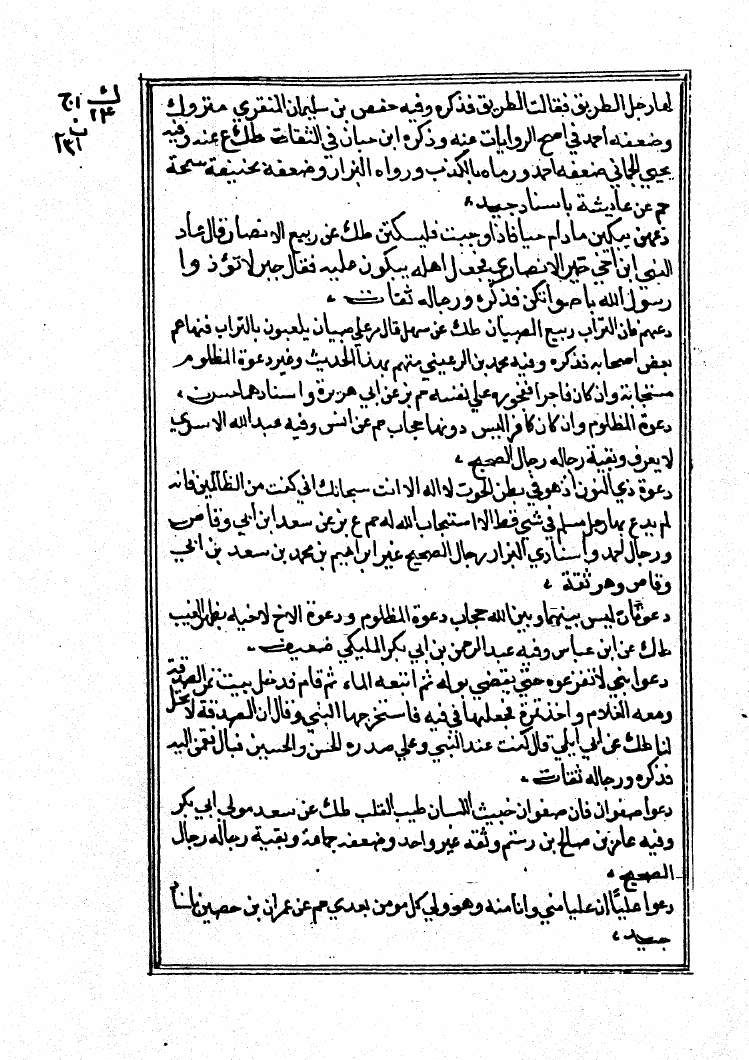 لها رجل الطريق فقالت الطريق فذكره وفيه حفص بن سليمان المنقري متروك
وضعفه احمد في اصح الروايات عنه وذكره ابن حبان في الثقات طك ع عنه وفيه
يحيى الحماني ضعفه احمد ورماه بالكذب ورواه البزار وضعفه
حم عن عايشة باسناد جيد
دعهن يبكين مادام حيا فاذا وجبت فليسكتن طك عن ربيع الانصار قال عاد
النبي ابن اخي جبر الانصاري فجعل اهله يبكون عليه فقال جبر لا تؤذوا
رسول الله باصواتكن فذكره ورجاله ثقات
دعهم فان التراب ربيع الصبيان طك عن سهل قال مر على صبيان يلعبون بالتراب فنهاهم
بعض اصحابه فذكره وفيه محمد بن الرعيني متهم بهذا الحديث وغير دعوة المظلوم
مستجابة وان كان فاجرا ففجوره على نفسه حم بز عن ابي هريرة واسنادهما حسن
دعوة المظلوم وان كان كافرا ليس دونها حجاب حم عن انس وفيه عبد الله الاسدي
لا يعرف وبقية رجاله رجال الصحيح
دعوة ذي النون اذ هو في بطن الحوت لا اله الا انت سبحانك اني كنت من الظالمين فانه
لم يدع بها رجل مسلم في شي قط الا استجاب الله له حم ع بز عن سعد ابن ابي وقاص
ورجال احمد واسنادي البزار رجال الصحيح غير ابراهيم بن محمد بن سعد بن ابي
وقاص وهو ثقة
دعوتان ليس بينهما وبين الله حجاب دعوة المظلوم ودعوة الاخ لاخيه بظهر الغيب
طك عن ابن عباس وفيه عبد الرحمن بن ابي بكر المليكي ضعيف
دعوا بني لا تفزعوه حتى يقضي بوله ثم اتبعه الماء ثم قام فدخل بيت تمر الصدقة
ومعه الغلام واخذ تمرة فجعلها في فيه فاستخرجها النبي وقال ان الصدقة لا تحل
لنا طك عن ابي ليلى قال كنت عند النبي وعلى صدره الحسن والحسين فبال فقمن اليه
فذكره ورجاله ثقات
دعوا صفوان فان صفوان خبيث اللسان طيب القلب طك عن سعد مولى ابي بكر
وفيه عامر بن صالح بن رستم وثقه غير واحد وضعفه جماعة وبقية رجاله رجال
الصحيح
دعوا عليًا ان عليا مني وانا منه وهو ولي كل مومن بعدي حم عن عمران بن حصين
جيد